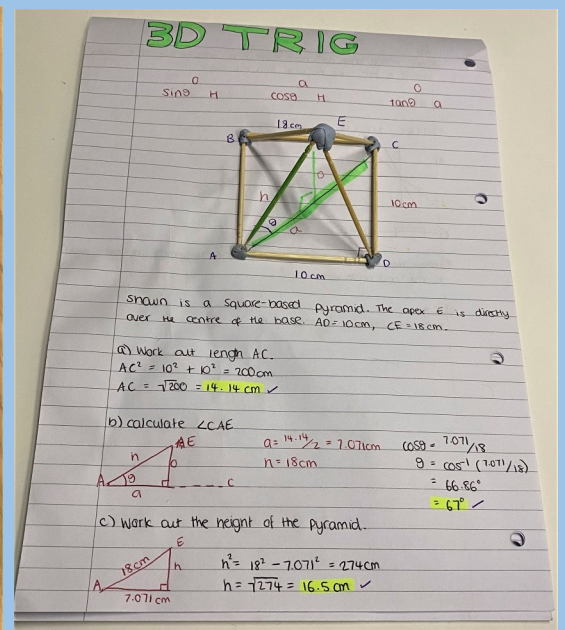 3D TRIG
sinθ O H
cosθ a H
tanθ O a
18cm E
B C
h o
10cm
θ a
A D
10cm
Shown is a square-based pyramid. The apex E is directly
over the centre of the base. AD=10cm, CE=18cm.
a) Work out lengh AC.
AC² = 10² + 10² = 200cm
AC = √200 = 14.14 cm ✓
b) calculate ∠CAE
E
h o
A θ C
a
a= 14.14/2 = 7.071cm
h = 18cm
cosθ = 7.071/18
θ = cos⁻¹ (7.071/18)
= 66.86°
= 67° ✓
c) Work out the height of the pyramid.
E
18cm h
A
7.071 cm
h² = 18² - 7.071² = 274cm
h = √274 = 16.5 cm ✓